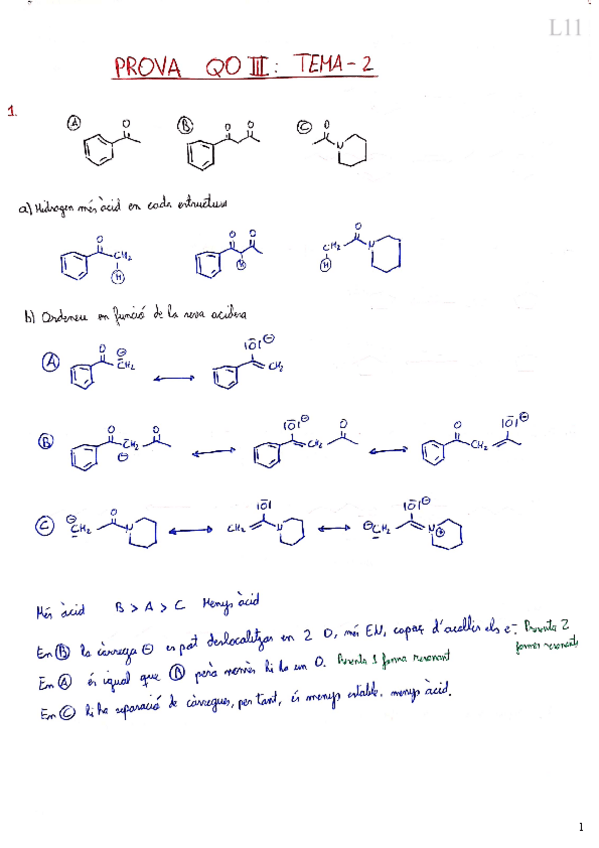 L11
PROVA QO III: TEMA-2
1.
A B C
a) Hidrogen més àcid en cada estructura
b) Ordeneu en funció de la seva acidesa
A
B
C
Més àcid B > A > C Menys àcid
En B la càrrega ⊖ es pot deslocalitzar en 2 O, més EN, capaç d'acollir els e-. Presenta 2 formes resonants
En A és igual que B però només hi ha un O. Presenta 1 forma resonant
En C hi ha separació de càrregues, per tant, és menys estable. menys àcid.
1